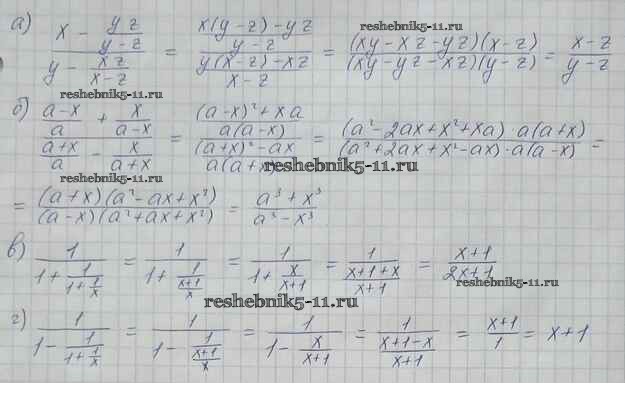 а) (x - yz/(y-z)) / (y - xz/(x-z)) = ((x(y-z)-yz)/(y-z)) / ((y(x-z)-xz)/(x-z)) = (xy-xz-yz)(x-z) / (xy-yz-xz)(y-z) = (x-z)/(y-z)
reshebnik5-11.ru
reshebnik5-11.ru
б) ((a-x)/a + x/(a-x)) / ((a+x)/a - x/(a+x)) = (((a-x)²+xa)/(a(a-x))) / (((a+x)²-ax)/(a(a+x))) = (a²-2ax+x²+xa)·a(a+x) / (a²+2ax+x²-ax)·a(a-x) =
reshebnik5-11.ru
= (a+x)(a²-ax+x²) / (a-x)(a²+ax+x²) = (a³+x³)/(a³-x³)
в) 1/(1+1/(1+1/x)) = 1/(1+1/((x+1)/x)) = 1/(1+x/(x+1)) = 1/((x+1+x)/(x+1)) = (x+1)/(2x+1)
reshebnik5-11.ru
reshebnik5-11.ru
г) 1/(1-1/(1+1/x)) = 1/(1-1/((x+1)/x)) = 1/(1-x/(x+1)) = 1/((x+1-x)/(x+1)) = (x+1)/1 = x+1